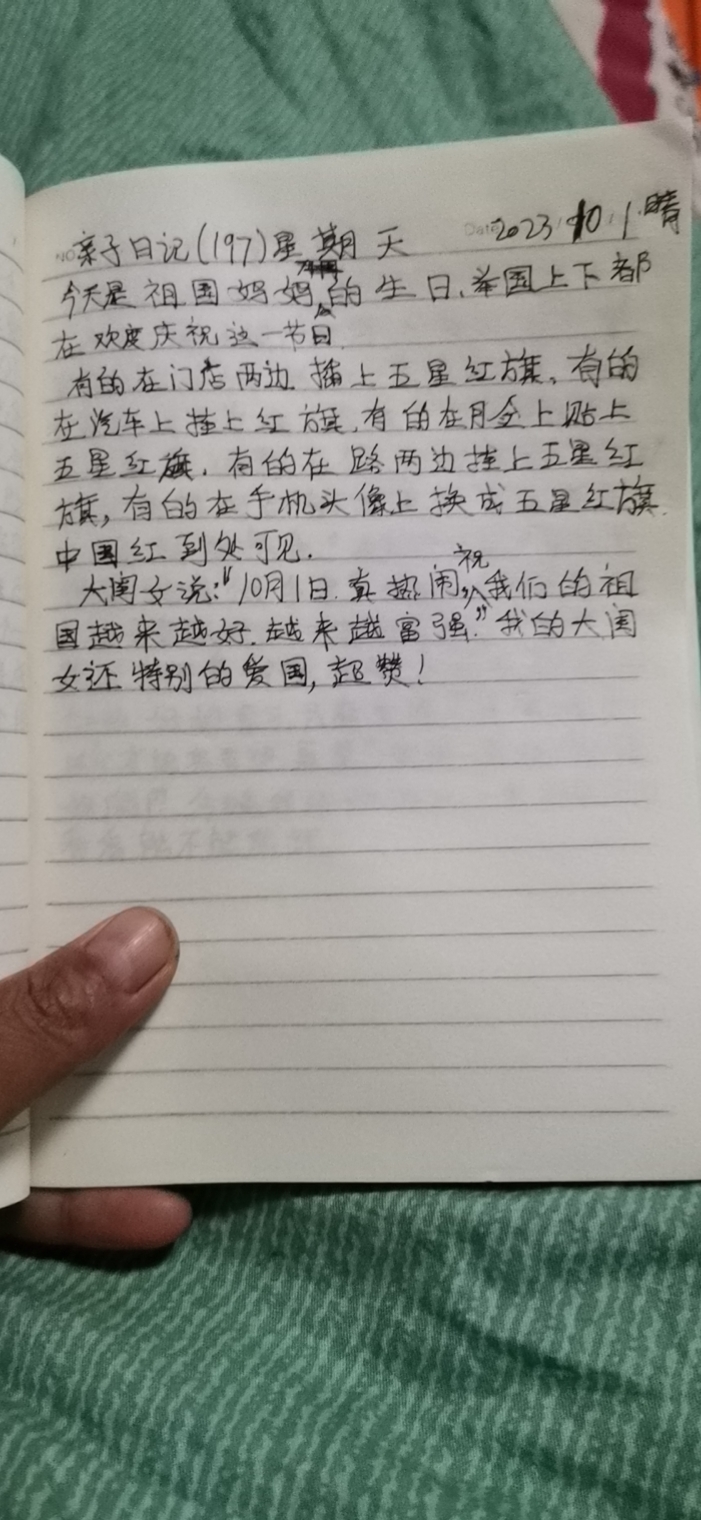 亲子日记(197)星期天 Date 2023.10.1.晴
今天是祖国妈妈的生日,举国上下都
在欢度庆祝这一节日.
有的在门店两边插上五星红旗,有的
在汽车上挂上红旗,有的在月全上贴上
五星红旗.有的在路两边挂上五星红
旗,有的在手机头像上换成五星红旗.
中国红到处可见.
大闺女说:"10月1日.真热闹,祝我们的祖
国越来越好.越来越富强."我的大闺
女还特别的爱国,超赞!